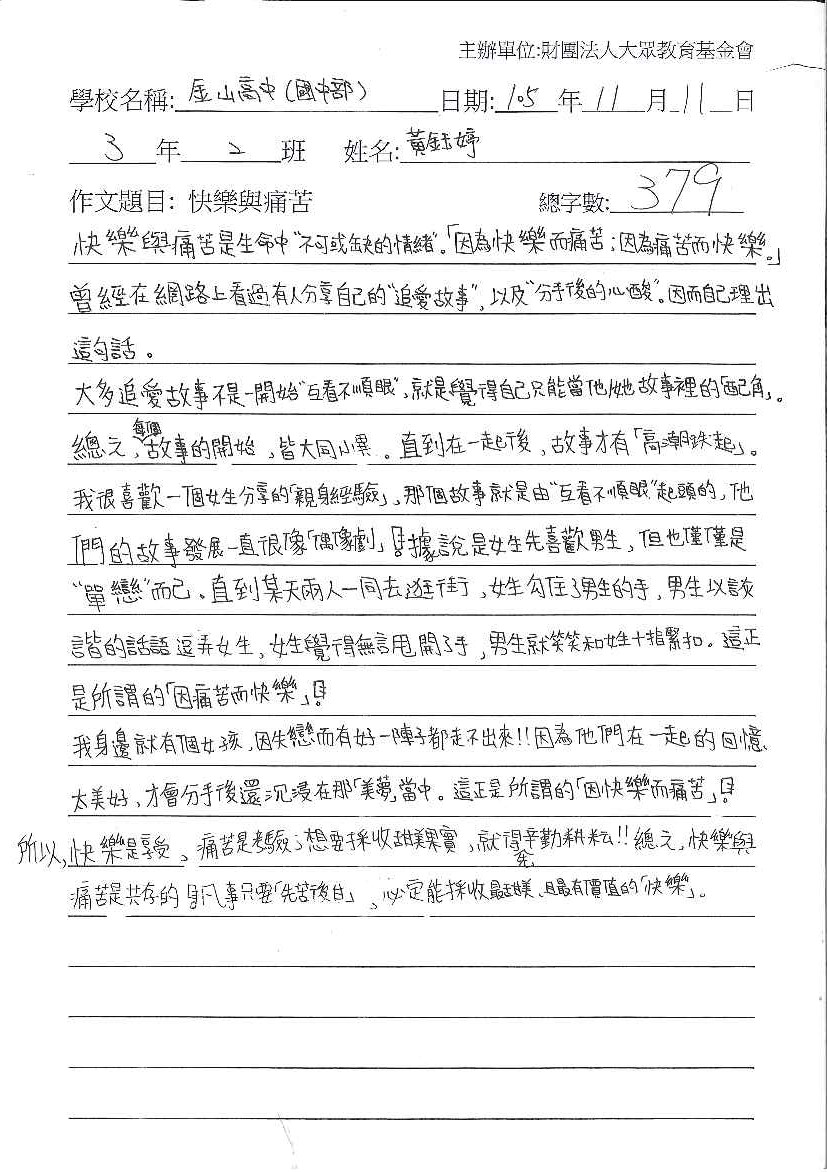 主辦單位:財團法人大眾教育基金會
學校名稱: 金山高中(國中部) 日期: 105 年 11 月 11 日
3 年 2 班 姓名: 黃鈺婷
作文題目: 快樂與痛苦 總字數: 379
快樂與痛苦是生命中"不可或缺的情緒"。「因為快樂而痛苦;因為痛苦而快樂。」
曾經在網路上看過有人分享自己的"追愛故事",以及"分手後的心酸"。因而自己理出
這句話。
大多追愛故事不是一開始"互看不順眼",就是覺得自己只能當他/她故事裡的「配角」。
總之、每個故事的開始,皆大同小異。直到在一起後,故事才有「高潮跌起」。
我很喜歡一個女生分享的「親身經驗」,那個故事就是由"互看不順眼"起頭的,他
們的故事發展一直很像「偶像劇」!據說是女生先喜歡男生,但也僅僅是
"單戀"而已。直到某天兩人一同去逛街,女生勾住了男生的手,男生以詼
諧的話語逗弄女生,女生覺得無言甩開了手,男生就笑笑和女生十指緊扣。這正
是所謂的「因痛苦而快樂」!
我身邊就有個女孩,因失戀而有好一陣子都走不出來!!因為他們在一起的回憶
太美好,才會分手後還沉浸在那「美夢」當中。這正是所謂的「因快樂而痛苦」!
所以,快樂是享受、痛苦是考驗;想要採收甜美果實,就得先辛勤耕耘!!總之,快樂與
痛苦是共存的,凡事只要「先苦後甘」,必定能採收最甜美、且最有價值的「快樂」。